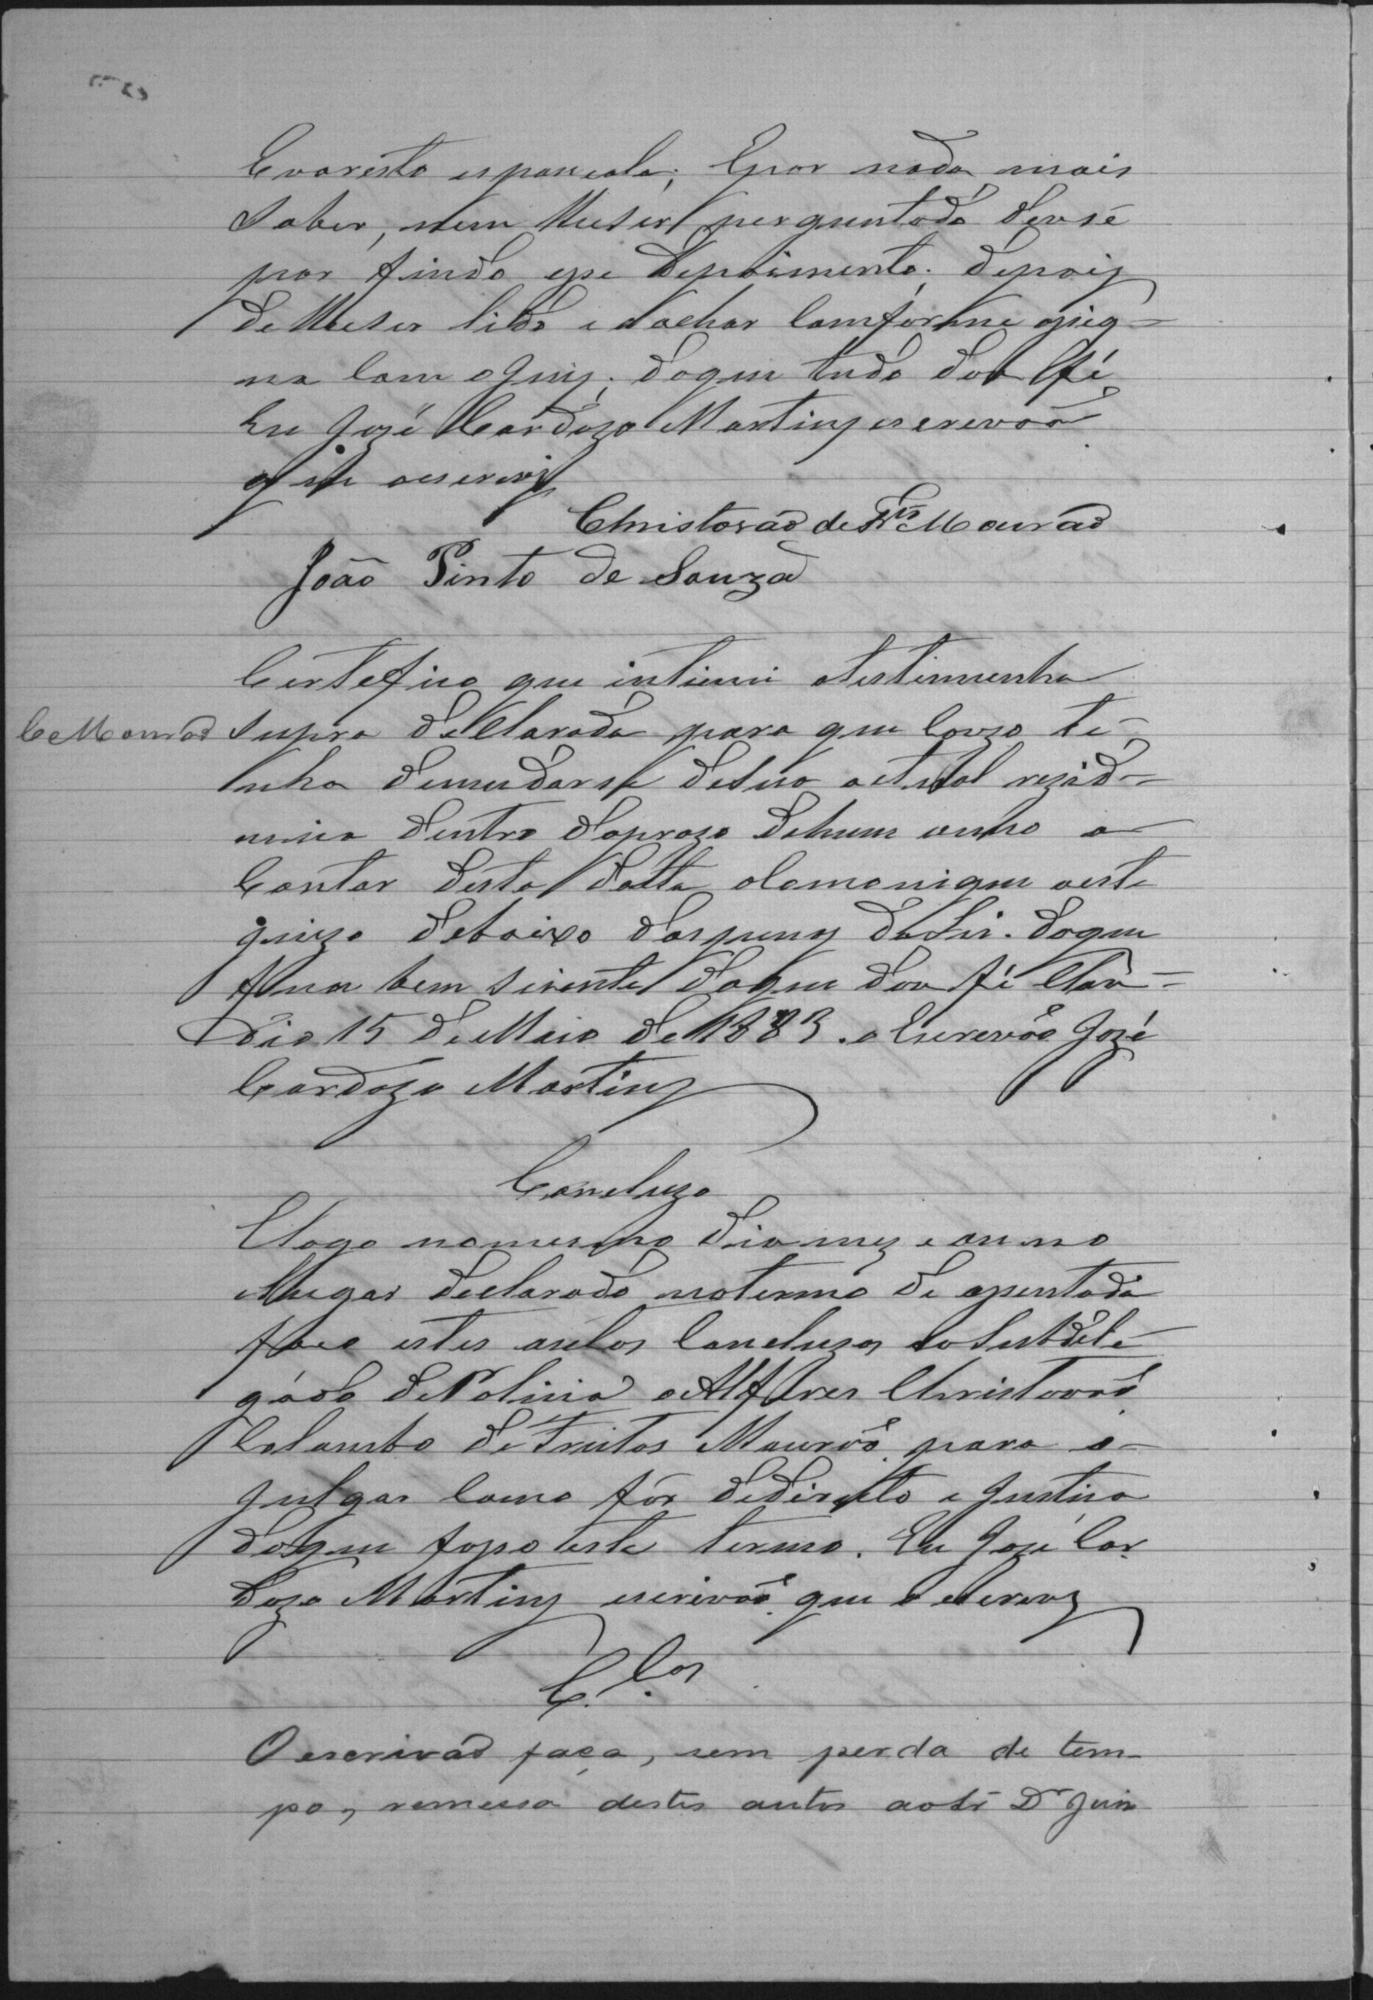 Evaristo espancala; E por nada mais
saber, nem lhe ser perguntado deu-se
por findo esse depoimento; depois
de lhe ser lido e o achar comforme assig-
na com o Juiz; do que tudo dou fé
Eu Jozé Cardozo Martins escrevão
que o escrevy
Christovão de Ftas Mourão
João Pinto de Souza
Certefico que intimei a testimunha
C Mourão
supra declarada para que cazo te-
nha de mudar-se de sua actual rezid-
encia dentro do prazo de hum anno a
Contar desta datta o comonique a este
juizo debaixo das penas da Lei. do que
ficou bem siente do que dou fé Clau-
dio 15 de Maio de 1883. o Escrevão Jozé
Cardozo Martins
Concluzo
E logo no mesmo dia mez e anno
e lugar declarado no termo de asentada
faço estes autos Concluzos ao Subdele-
gádo de Policia o Alferes Christovão
Colombo de Freitas Mourão para o
julgar como fôr de direito e Justiça
do que faço este termo. Eu Jozé Car
dozo Martins escrivão que o escrevy
C.los
O escrivão faça, sem perda de tem-
po, remessa destes autos ao Dr Juiz